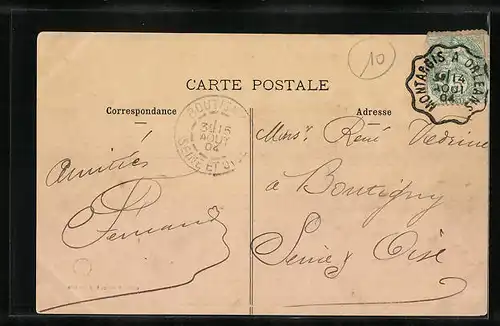 10
CARTE POSTALE
Correspondance
Adresse
MONTARGIS A ORLEANS
14
AOUT
04
BOUTIGNY
3E/15
AOUT
04
SEINE ET OISE
Amitiés
Fernand
Monsr René
à Boutigny
Seine & Oise